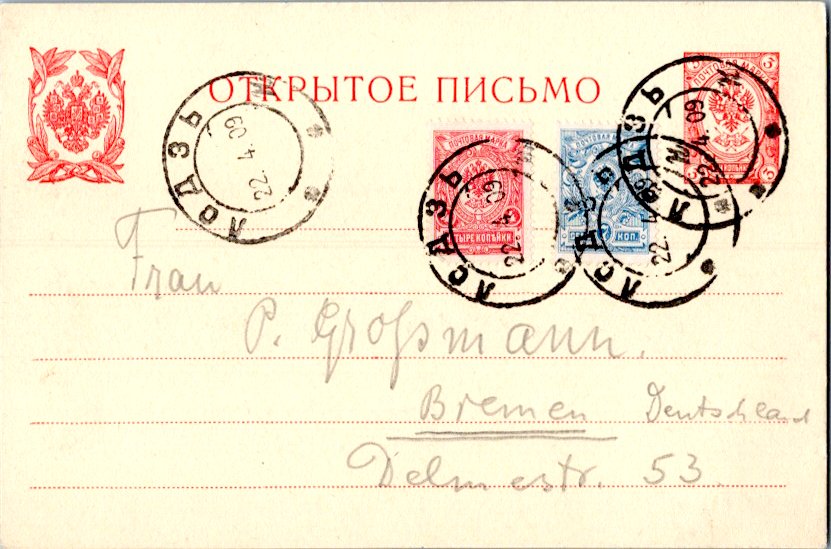 ОТКРЫТОЕ ПИСЬМО
3 3
ПОЧТОВАЯ МАРКА
3 3
ЛОДЗЬ
22 4 09
ЛОДЗЬ
22 4 09
ПОЧТОВАЯ МАРКА
ПОЧТОВАЯ
ЛОДЗЬ
22. 4. 09
ТЫРЕ КОПѢЙКИ
ЛОДЗЬ
22. 4
7 КОП.
Frau
P. Großmann.
Bremen Deutschland
Delmestr. 53.